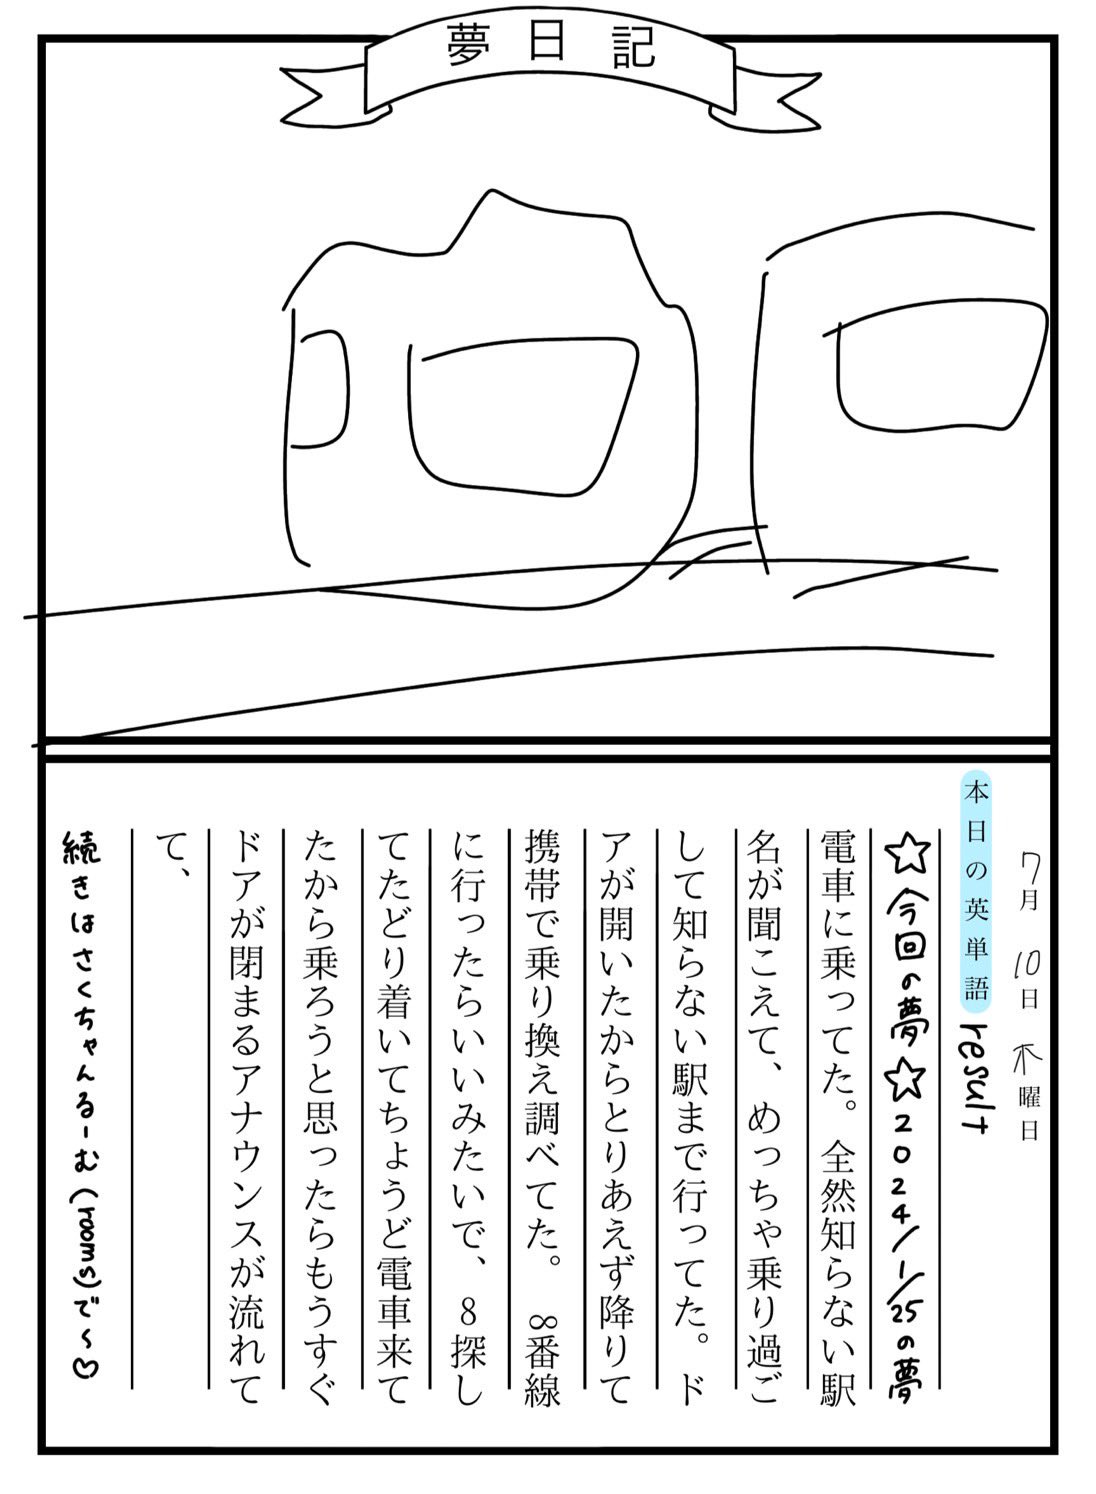 夢日記
7月 10日 木曜日
本日の英単語 result
☆今回の夢☆2024/1/25の夢
電車に乗ってた。全然知らない駅
名が聞こえて、めっちゃ乗り過ご
して知らない駅まで行ってた。ド
アが開いたからとりあえず降りて
携帯で乗り換え調べてた。8番線
に行ったらいいみたいで、8探し
てたどり着いてちょうど電車来て
たから乗ろうと思ったらもうすぐ
ドアが閉まるアナウンスが流れて
て、
続きはさくちゃんるーむ(rooms)で〜♡